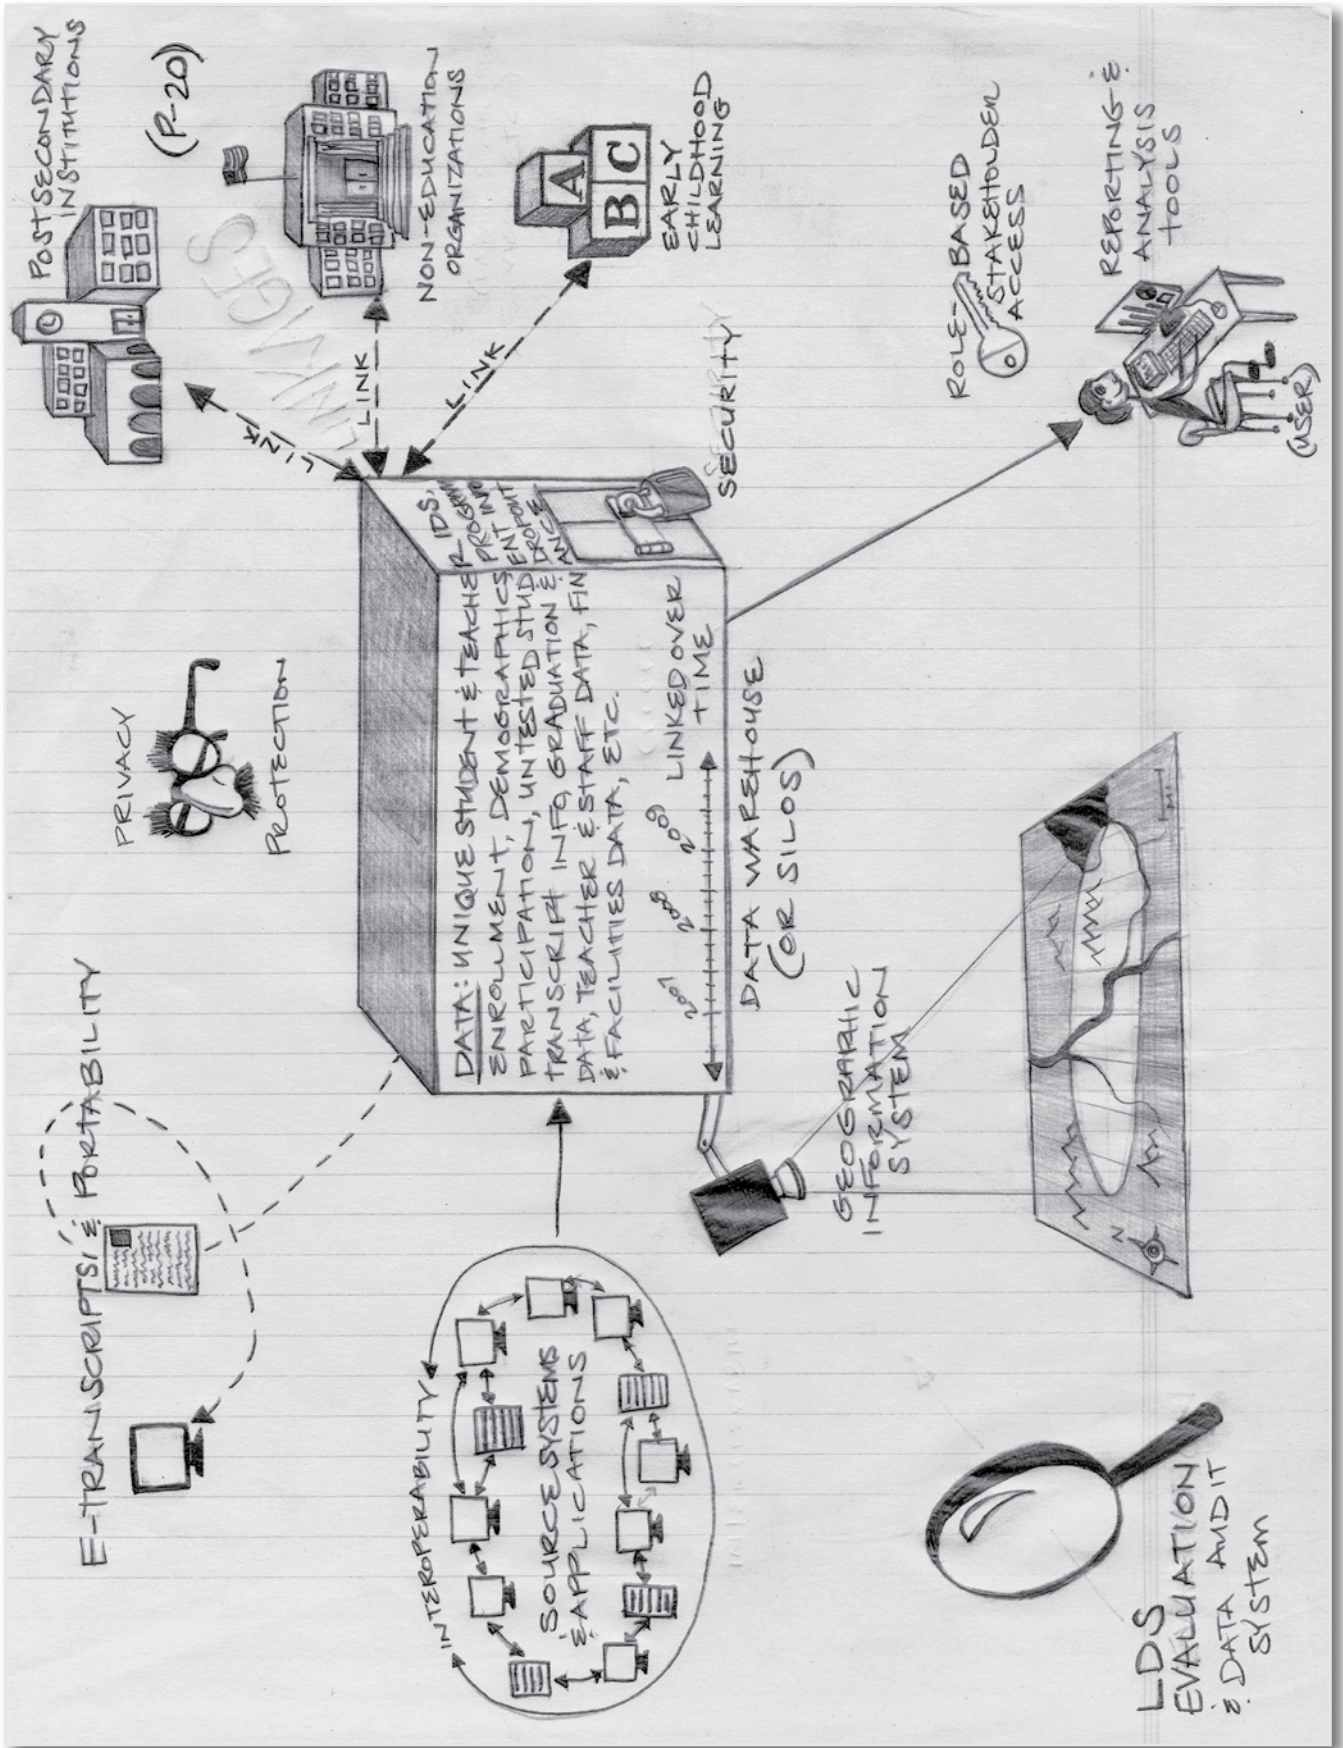 E-TRANSCRIPTS &
PORTABILITY
PRIVACY
PROTECTION
POSTSECONDARY
INSTITUTIONS
(P-20)
LINKAGES
LINK
LINK
LINK
NON-EDUCATION
ORGANIZATIONS
A
B C
EARLY
CHILDHOOD
LEARNING
INTEROPERABILITY
SOURCE SYSTEMS
& APPLICATIONS
DATA: UNIQUE STUDENT & TEACHER IDS,
ENROLLMENT, DEMOGRAPHICS, PROGRAM
PARTICIPATION, UNTESTED STUDENT INFO
TRANSCRIPT INFO, GRADUATION & DROPOUT
DATA, TEACHER & STAFF DATA, FINANCE
& FACILITIES DATA, ETC.
2007 2008 2009
LINKED OVER
TIME
SECURITY
DATA WAREHOUSE
(OR SILOS)
GEOGRAPHIC
INFORMATION
SYSTEM
N
1 MI
ROLE-BASED
STAKEHOLDER
ACCESS
REPORTING &
ANALYSIS
TOOLS
(USER)
LDS
EVALUATION
& DATA AUDIT
SYSTEM